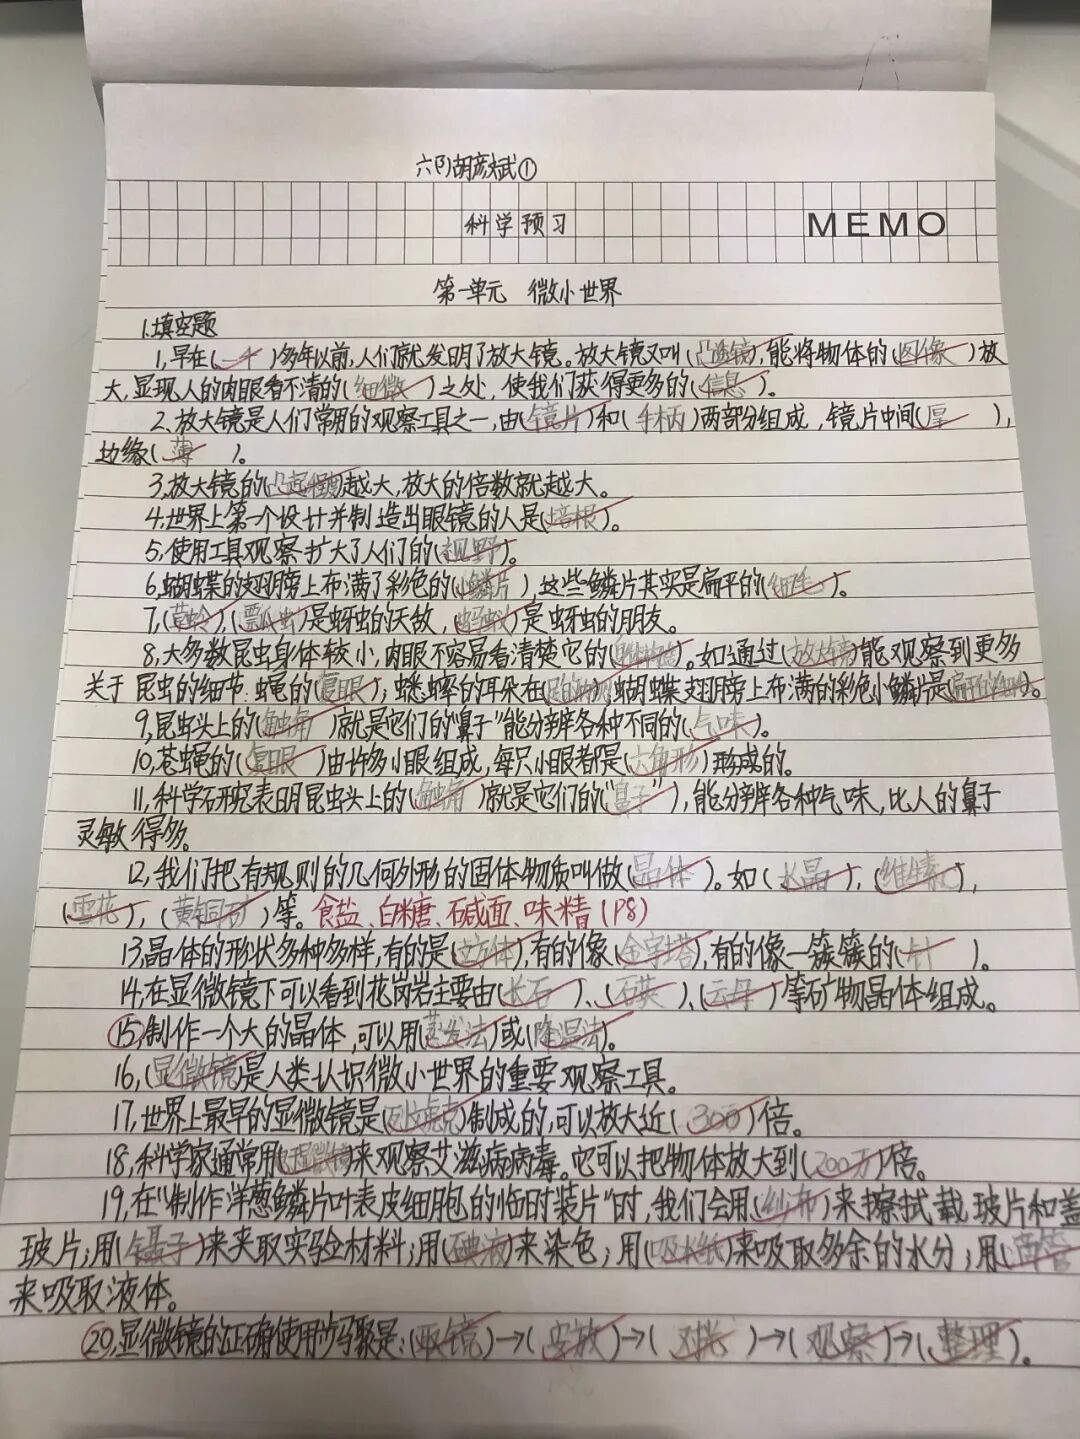 六(1)胡彦斌①
科学预习
MEMO
第一单元 微小世界
1.填空题
1,早在(一千)多年以前,人们就发明了放大镜。放大镜又叫(凸透镜),能将物体的(图像)放
大,显现人的肉眼看不清的(细微)之处,使我们获得更多的(信息)。
2,放大镜是人们常用的观察工具之一,由(镜片)和(手柄)两部分组成,镜片中间(厚),
边缘(薄)。
3,放大镜的(凸起程度)越大,放大的倍数就越大。
4,世界上第一个设计并制造出眼镜的人是(培根)。
5,使用工具观察扩大了人们的(视野)。
6,蝴蝶的翅膀上布满了彩色的(小鳞片),这些鳞片其实是扁平的(细毛)。
7,(草蛉),(瓢虫)是蚜虫的天敌,(蚂蚁)是蚜虫的朋友。
8,大多数昆虫身体较小,肉眼不容易看清楚它的()。如通过(放大镜)能观察到更多
关于昆虫的细节:蝇的(复眼);蟋蟀的耳朵在(),蝴蝶翅膀上布满的彩色小鳞片是(扁平的细毛)。
9,昆虫头上的(触角)就是它们的"鼻子"能分辨各种不同的(气味)。
10,苍蝇的(复眼)由许多小眼组成,每只小眼都是(六角形)形成的。
11,科学研究表明昆虫头上的(触角)就是它们的"(鼻子"),能分辨各种气味,比人的鼻子
灵敏得多。
12,我们把有规则的几何外形的固体物质叫做(晶体)。如(水晶),(维C),
(雪花),(黄铜矿)等。食盐、白糖、碱面、味精(P8)
13,晶体的形状多种多样,有的是(立方体),有的像(金字塔),有的像一簇簇的(针)。
14,在显微镜下可以看到花岗岩主要由(长石)、(石英)、(云母)等矿物晶体组成。
15,制作一个大的晶体,可以用(蒸发法)或(降温法)。
16,(显微镜)是人类认识微小世界的重要观察工具。
17,世界上最早的显微镜是(列文虎克)制成的,可以放大近(300)倍。
18,科学家通常用()来观察艾滋病病毒。它可以把物体放大到(200万)倍。
19,在"制作洋葱鳞片叶表皮细胞的临时装片"时,我们会用(纱布)来擦拭载玻片和盖
玻片;用(镊子)来夹取实验材料;用(碘液)来染色;用(吸水纸)来吸取多余的水分;用(滴管
来吸取液体。
20,显微镜的正确使用步骤是:(取镜)→(安放)→(对光)→(观察)→(整理)。